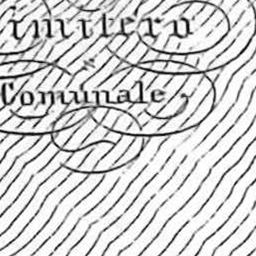 imitero
Comunale